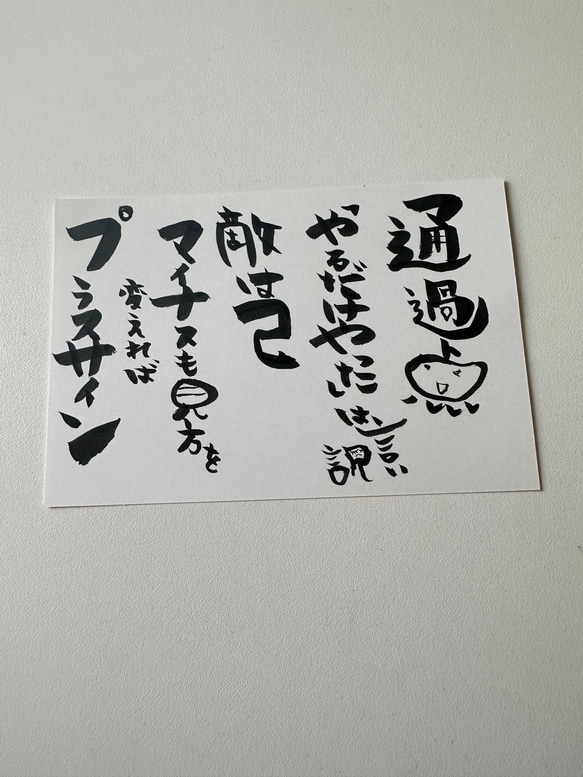 通過点
「やるだけやった」は言い訳
敵は己
マイナスも見方を
変えれば
プラスサイン